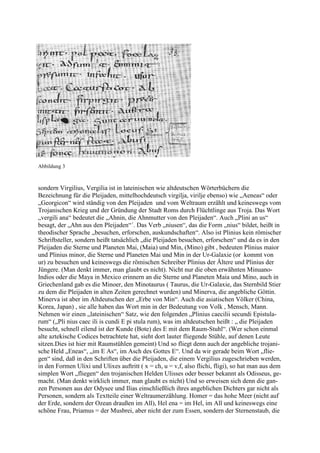 Abbildung 3
sondern Virgilius, Vergilia ist in lateinischen wie altdeutschen Wörterbüchern die
Bezeichnung für die Plejaden, mittelhochdeutsch virgilja, virilje ebenso) wie „Aeneas“ oder
„Georgicon“ wird ständig von den Plejaden und vom Weltraum erzählt und keineswegs vom
Trojanischen Krieg und der Gründung der Stadt Roms durch Flüchtlinge aus Troja. Das Wort
„vergili ana“ bedeutet die „Ahnin, die Ahnmutter von den Plejaden“. Auch „Plini an us“
besagt, der „Ahn aus den Plejaden“ʹ. Das Verb „niusen“, das die Form „nius“ bildet, heißt in
theodischer Sprache „besuchen, erforschen, auskundschaften“. Also ist Plinius kein römischer
Schriftsteller, sondern heißt tatsächlich „die Plejaden besuchen, erforschen“ und da es in den
Plejaden die Sterne und Planeten Mai, (Maia) und Min, (Mino) gibt , bedeuten Plinius maior
und Plinius minor, die Sterne und Planeten Mai und Min in der Ur-Galaxie (or kommt von
ur) zu besuchen und keineswegs die römischen Schreiber Plinius der Ältere und Plinius der
Jüngere. (Man denkt immer, man glaubt es nicht). Nicht nur die oben erwähnten Minuano-
Indios oder die Maya in Mexico erinnern an die Sterne und Planeten Maia und Mino, auch in
Griechenland gab es die Minoer, den Minotaurus ( Taurus, die Ur-Galaxie, das Sternbild Stier
zu dem die Plejaden in alten Zeiten gerechnet wurden) und Minerva, die angebliche Göttin.
Minerva ist aber im Altdeutschen der „Erbe von Min“. Auch die asiatischen Völker (China,
Korea, Japan) , sie alle haben das Wort min in der Bedeutung von Volk , Mensch, Mann.
Nehmen wir einen „lateinischen“ Satz, wie den folgenden „Plinius caecilii secundi Epistula-
rum“ („Pli nius caec ili is cundi E pi stula rum), was im altdeutschen heißt : „ die Plejaden
besucht, schnell eilend ist der Kunde (Bote) des E mit dem Raum-Stuhl“. (Wer schon einmal
alte aztekische Codices betrachtete hat, sieht dort lauter fliegende Stühle, auf denen Leute
sitzen.Dies ist hier mit Raumstühlen gemeint) Und so fliegt denn auch der angebliche trojani-
sche Held „Eneas“, „im E As“, im Asch des Gottes E“. Und da wir gerade beim Wort „flie-
gen“ sind, daß in den Schriften über die Plejaden, die einem Vergilius zugeschrieben werden,
in den Formen Ulixi und Ulixes auftritt ( x = ch, u = v,f, also flichi, fligi), so hat man aus dem
simplen Wort „fliegen“ den trojanischen Helden Ulisses oder besser bekannt als Odisseus, ge-
macht. (Man denkt wirklich immer, man glaubt es nicht) Und so erweisen sich denn die gan-
zen Personen aus der Odysee und Ilias einschließlich ihres angeblichen Dichters gar nicht als
Personen, sondern als Textteile einer Weltraumerzählung. Homer = das hohe Meer (nicht auf
der Erde, sondern der Ozean draußen im All), Hel ena = im Hel, im All und keineswegs eine
schöne Frau, Priamus = der Musbrei, aber nicht der zum Essen, sondern der Sternenstaub, die